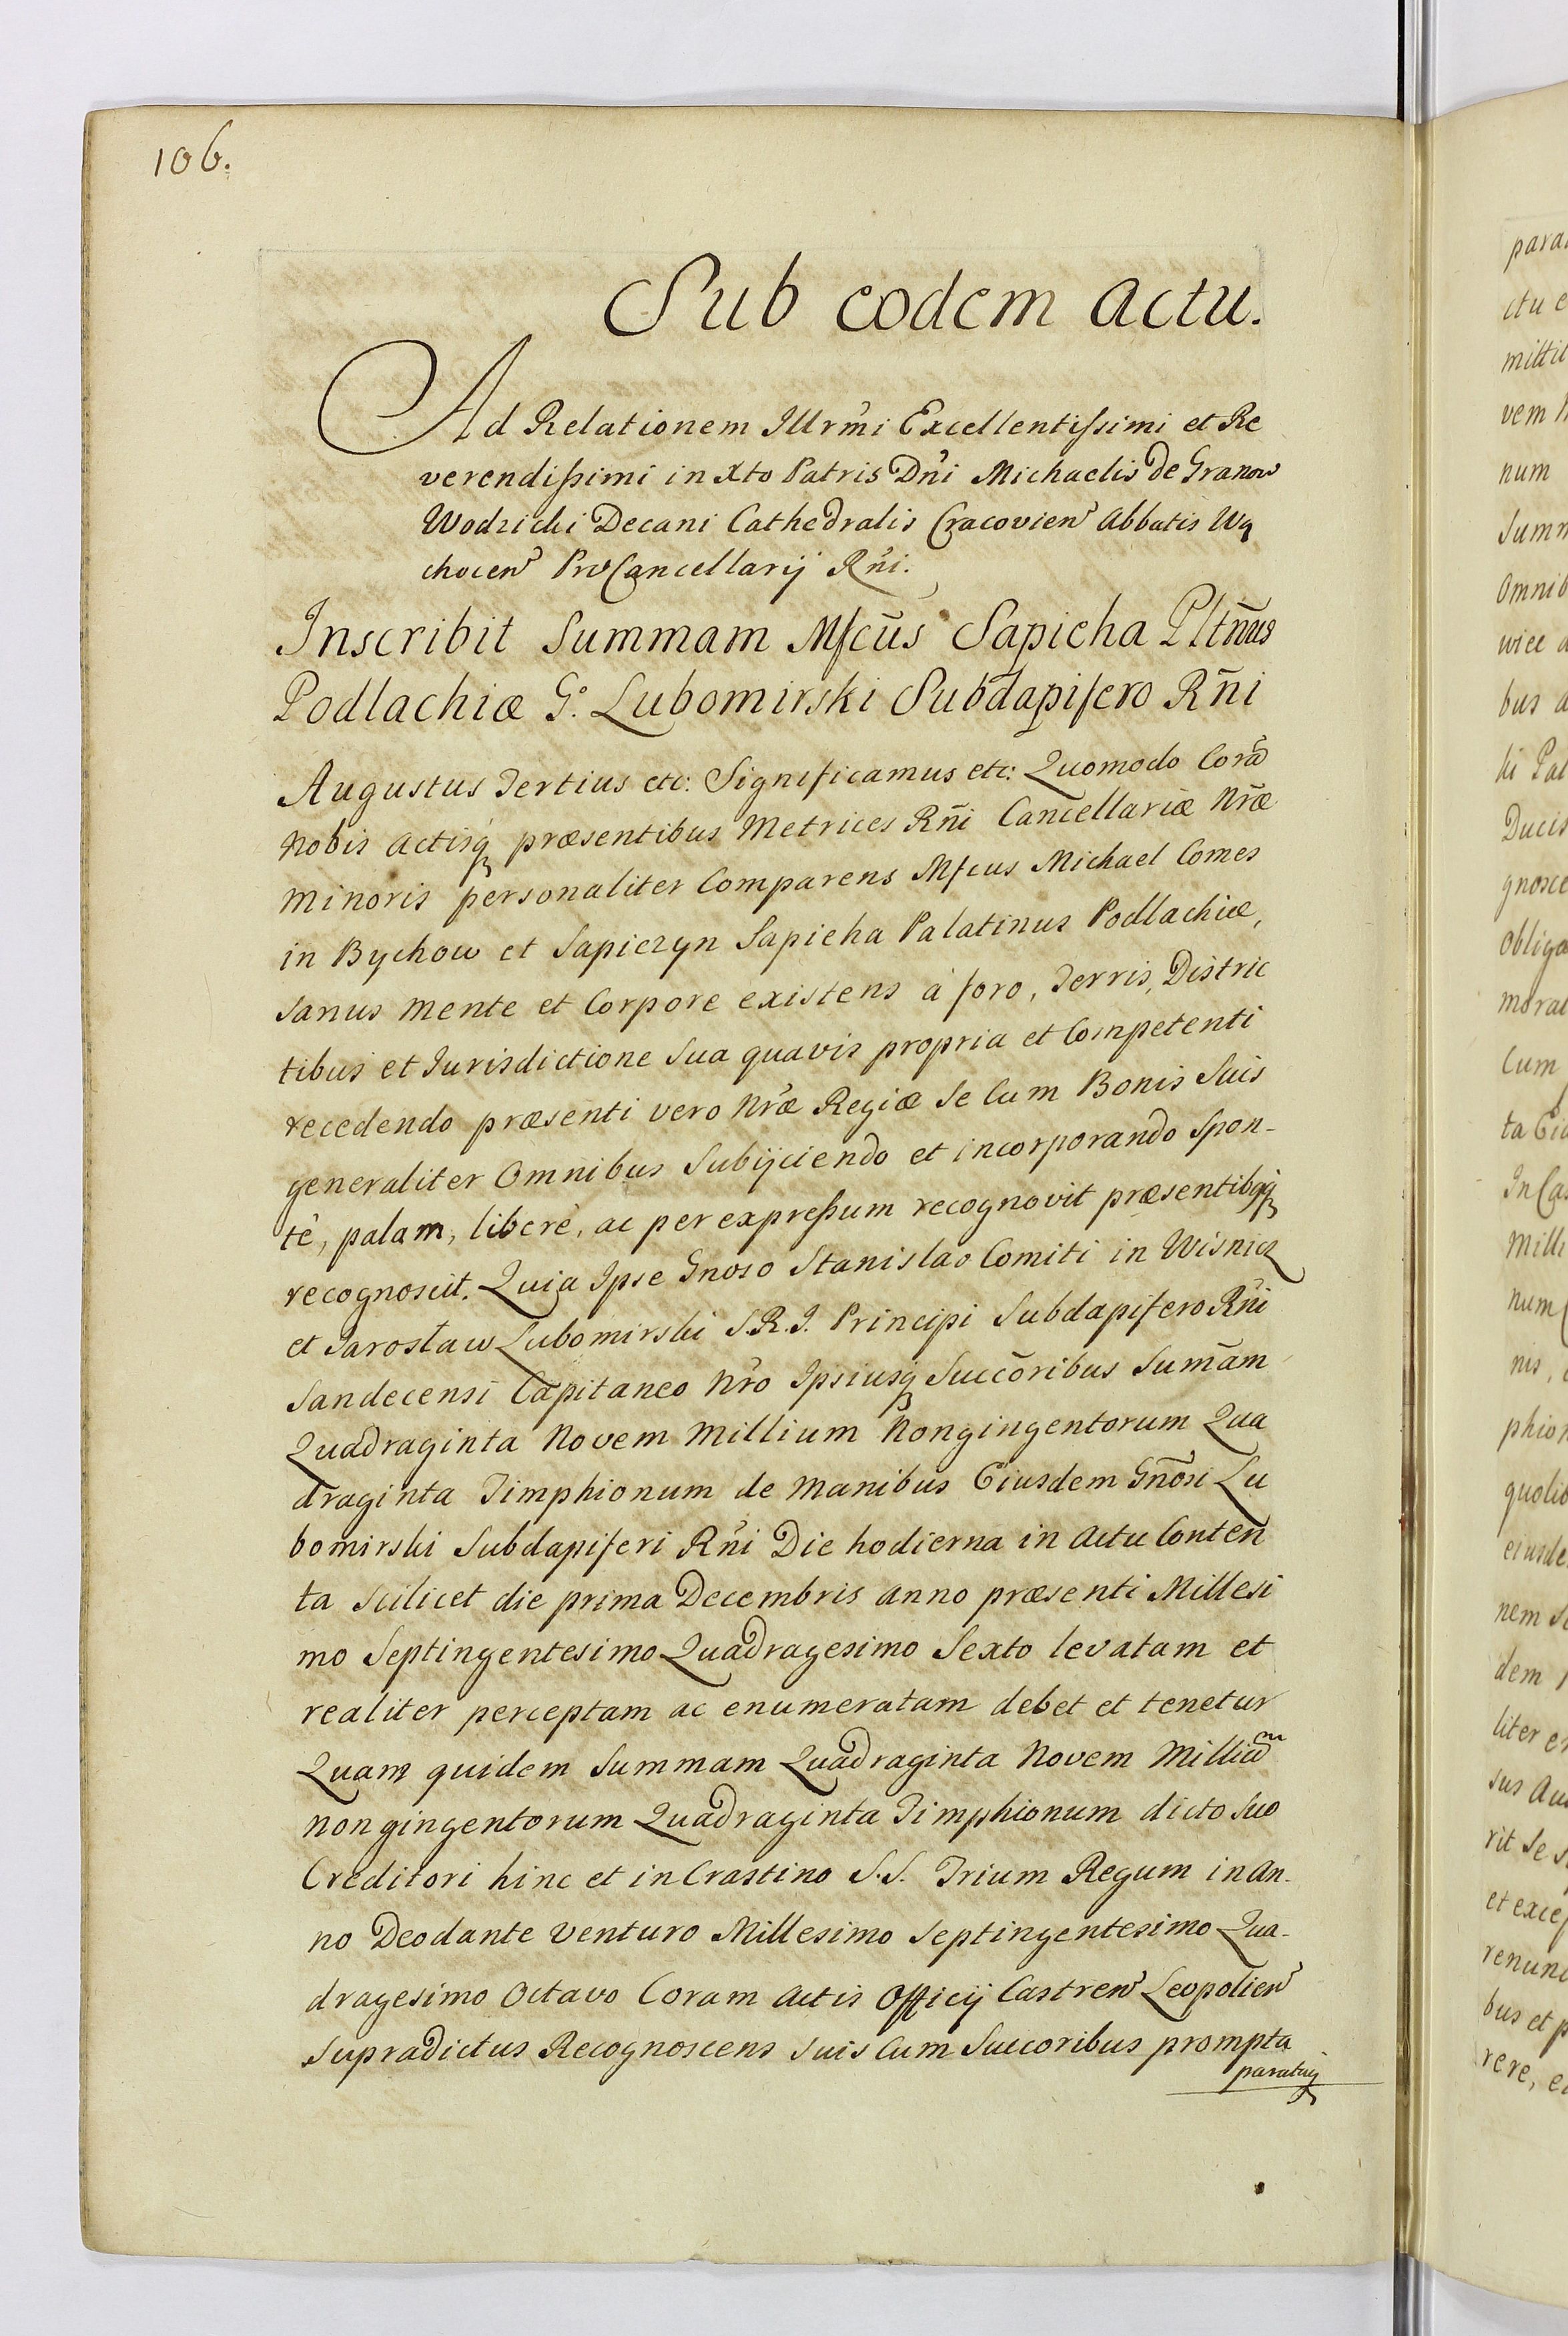 106.
Sub eodem actu.
Ad Relationem Illrm̃i Excellentissimi et Re
verendissimi in Xto Patris Dñi Michaelis de Granow
Wodzicki Decani Cathedralis Cracovien̄ Abbatis Wą
chocen̄ ProCancellarij Rñi.
Inscribit Summam Mfcūs Sapieha Pltñus
Podlachiæ G.° Lubomirski Subdapifero Rñi
Augustus Tertius etc: Significamus etc: Quomodo Corā
Nobis Actisq́ præsentibus Metrices Rñi Cancellariæ Nr̃æ
Minoris personaliter Comparens Mfcus Michael Comes
in Bychow et Sapiezyn Sapieha Palatinus Podlachiæ,
sanus mente et Corpore existens à foro, Terris, Distric
tibus et Jurisdictione Sua quavis propria et Competenti
recedendo præsenti vero Nr̃æ Regiæ Se Cum Bonis Suis
generaliter Omnibus Subijciendo et incorporando Spon-
tè, palam, liberè, ac per expressum recognovit præsentibqq́
recognoscit. Quia Ipse Gnoso Stanislao Comiti in Wisnicz
et Jarosław Lubomirski S.R.I. Principi Subdapifero Rñi
Sandecensi Capitaneo Nr̃o Ipsiusq́ Succōribus Sum̄am
Quadraginta Novem Millium Nongingentorum Qua
draginta Timphionum de Manibus Eiusdem Gnōsi Lu
bomirski Subdapiferi Rñi Die hodierna in Actu Conten̄
ta Scilicet die prima Decembris Anno præsenti Millesi
mo Septingentesimo Quadragesimo Sexto levatam et
realiter perceptam ac enumeratam debet et tenetur
Quam quidem Summam Quadraginta Novem Milliūm
nongingentorum Quadraginta Timphionum dicto Suo
Creditori hinc et in Crastino S.S. Trium Regum in An-
no Deodante Venturo Millesimo Septingentesimo Qua-
dragesimo Octavo Coram Actis Officij Castren̄ Leopolien̄
Supradictus Recognoscens Suis Cum Succoribus prompta
paratuq́
para
ctu e
mittit
vem
num
Summ
Omnib
bus a
ki Pal
Ducis
gnosce
obliga
morat
Cum
In Ca
Milli
num
nis,
phion
quolib
eiusde
nem
dem
liter e
sus Au
rit Se
et excep
renunc
bus et p
rere, e